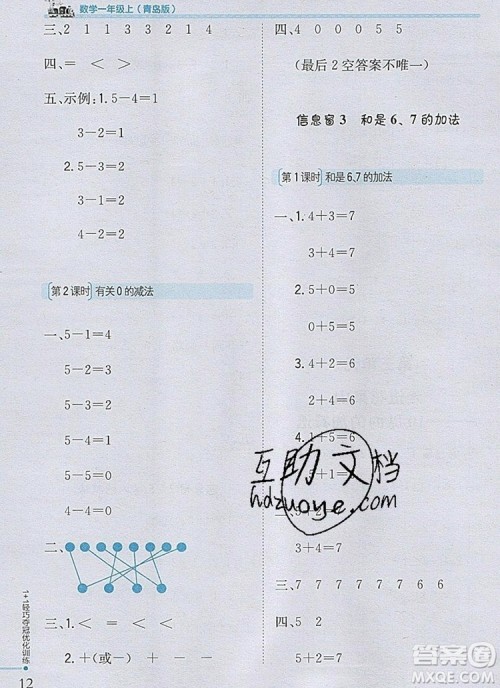 数学一年级上（青岛版）
三、2 1 1 3 1 4 1
四、＝ ＜ ＜
五、示例：1.5－4＝1
3－2＝1
2.5－3＝2
3－1＝2
4－2＝2
第2课时 有关0的减法
一、5－1＝4
5－2＝3
5－3＝2
5－4＝1
5－5＝0
4－4＝0
二、
三、1.＜ ＝ ＜ ＜
2.＋(或－) ＋ － －
1+1轻巧夺冠优化训练
12
四、4 0 0 0 5 5
(最后2空答案不唯一)
信息窗3 和是6、7的加法
第1课时 和是6、7的加法
一、1.4＋3＝7
3＋4＝7
2.5＋0＝5
0＋5＝5
3.4＋2＝6
2＋4＝6
4.1＋5＝6
互助文档
hdzuoye.com
3＋4＝7
三、7 7 7 7 7 6
四、5 2
5＋2＝7
答案圈
MXQE.COM